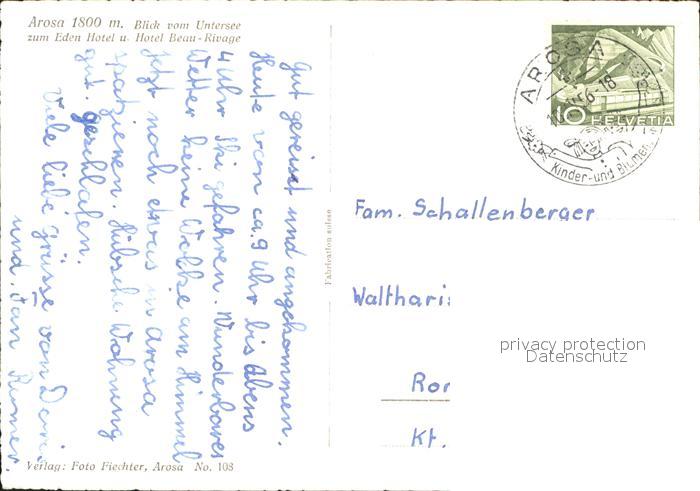 Arosa 1800 m. Blick vom Untersee
zum Eden Hotel u. Hotel Beau-Rivage
Gut gereist und angekommen.
Heute von ca. 9 Uhr bis Abens
4 Uhr Ski gefahren. Wunderbares
Wetter keine Wolke am Himmel
jetzt noch etwas in Arosa
spatzieren. Hübsche Wohnung
gut geschlafen.
Viele liebe Grüsse von
und
Verlag: Foto Fiechter, Arosa No. 108
Fabrication suisse
AROSA
10
HELVETIA
Kinder- und Blumen
Fam. Schallenberger
Walthari
privacy protection
Datenschutz
Ror
Kt.